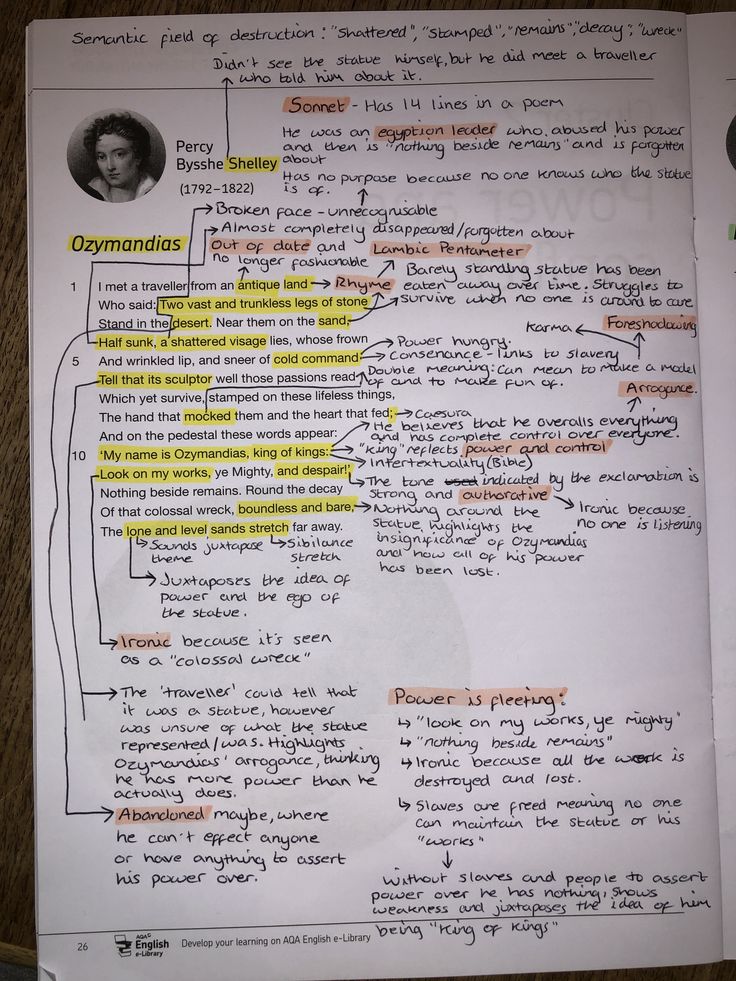 Semantic field of destruction: "shattered", "stamped", "remains", "decay", "wreck"
Didn't see the statue himself, but he did meet a traveller
who told him about it.
Sonnet - Has 14 lines in a poem
He was an egyption leader who abused his power
and then is "nothing beside remains" and is forgotten
about
Has no purpose because no one knows who the statue
is of.
Percy
Bysshe Shelley
(1792–1822)
Broken face - unrecognisable
Almost completely disappeared/forgotten about
Ozymandias
Out of date and
no longer fashionable
Lambic Pentameter
1 I met a traveller from an antique land
Who said: Two vast and trunkless legs of stone
Stand in the desert. Near them on the sand,
Half sunk, a shattered visage lies, whose frown
5 And wrinkled lip, and sneer of cold command
Tell that its sculptor well those passions read
Which yet survive, stamped on these lifeless things,
The hand that mocked them and the heart that fed;
And on the pedestal these words appear:
10 'My name is Ozymandias, king of kings:
Look on my works, ye Mighty, and despair!'
Nothing beside remains. Round the decay
Of that colossal wreck, boundless and bare,
The lone and level sands stretch far away.
Rhyme
Barely standing statue has been
eaten away over time. Struggles to
survive when no one is around to care
Karma
Foreshadowing
Power hungry.
Consenance - links to slavery
Double meaning: Can mean to make a model
of and to make fun of.
Arrogance.
Caesura
He believes that he overalls everything
and has complete control over everyone.
"King" reflects power and control
Intertextuality (Bible)
The tone used indicated by the exclamation is
strong and authorative
Ironic because
no one is listening
Nothing around the
statue, highlights the
insignificance of Ozymandias
and how all of his power
has been lost.
Sounds juxtapose
theme
Sibilance
stretch
Juxtaposes the idea of
power and the ego of
the statue.
Ironic because it's seen
as a "colossal wreck"
The 'traveller' could tell that
it was a statue, however
was unsure of what the statue
represented/was. Highlights
Ozymandias' arrogance, thinking
he has more power than he
actually does.
Abandoned maybe, where
he can't effect anyone
or have anything to assert
his power over.
Power is fleeting:
"look on my works, ye Mighty"
"nothing beside remains"
Ironic because all the work is
destroyed and lost.
Slaves are freed meaning no one
can maintain the statue or his
"works"
Without slaves and people to assert
power over he has nothing, shows
weakness and juxtaposes the idea of him
being "King of Kings"
26
AQA
English
e-Library
Develop your learning on AQA English e-Library